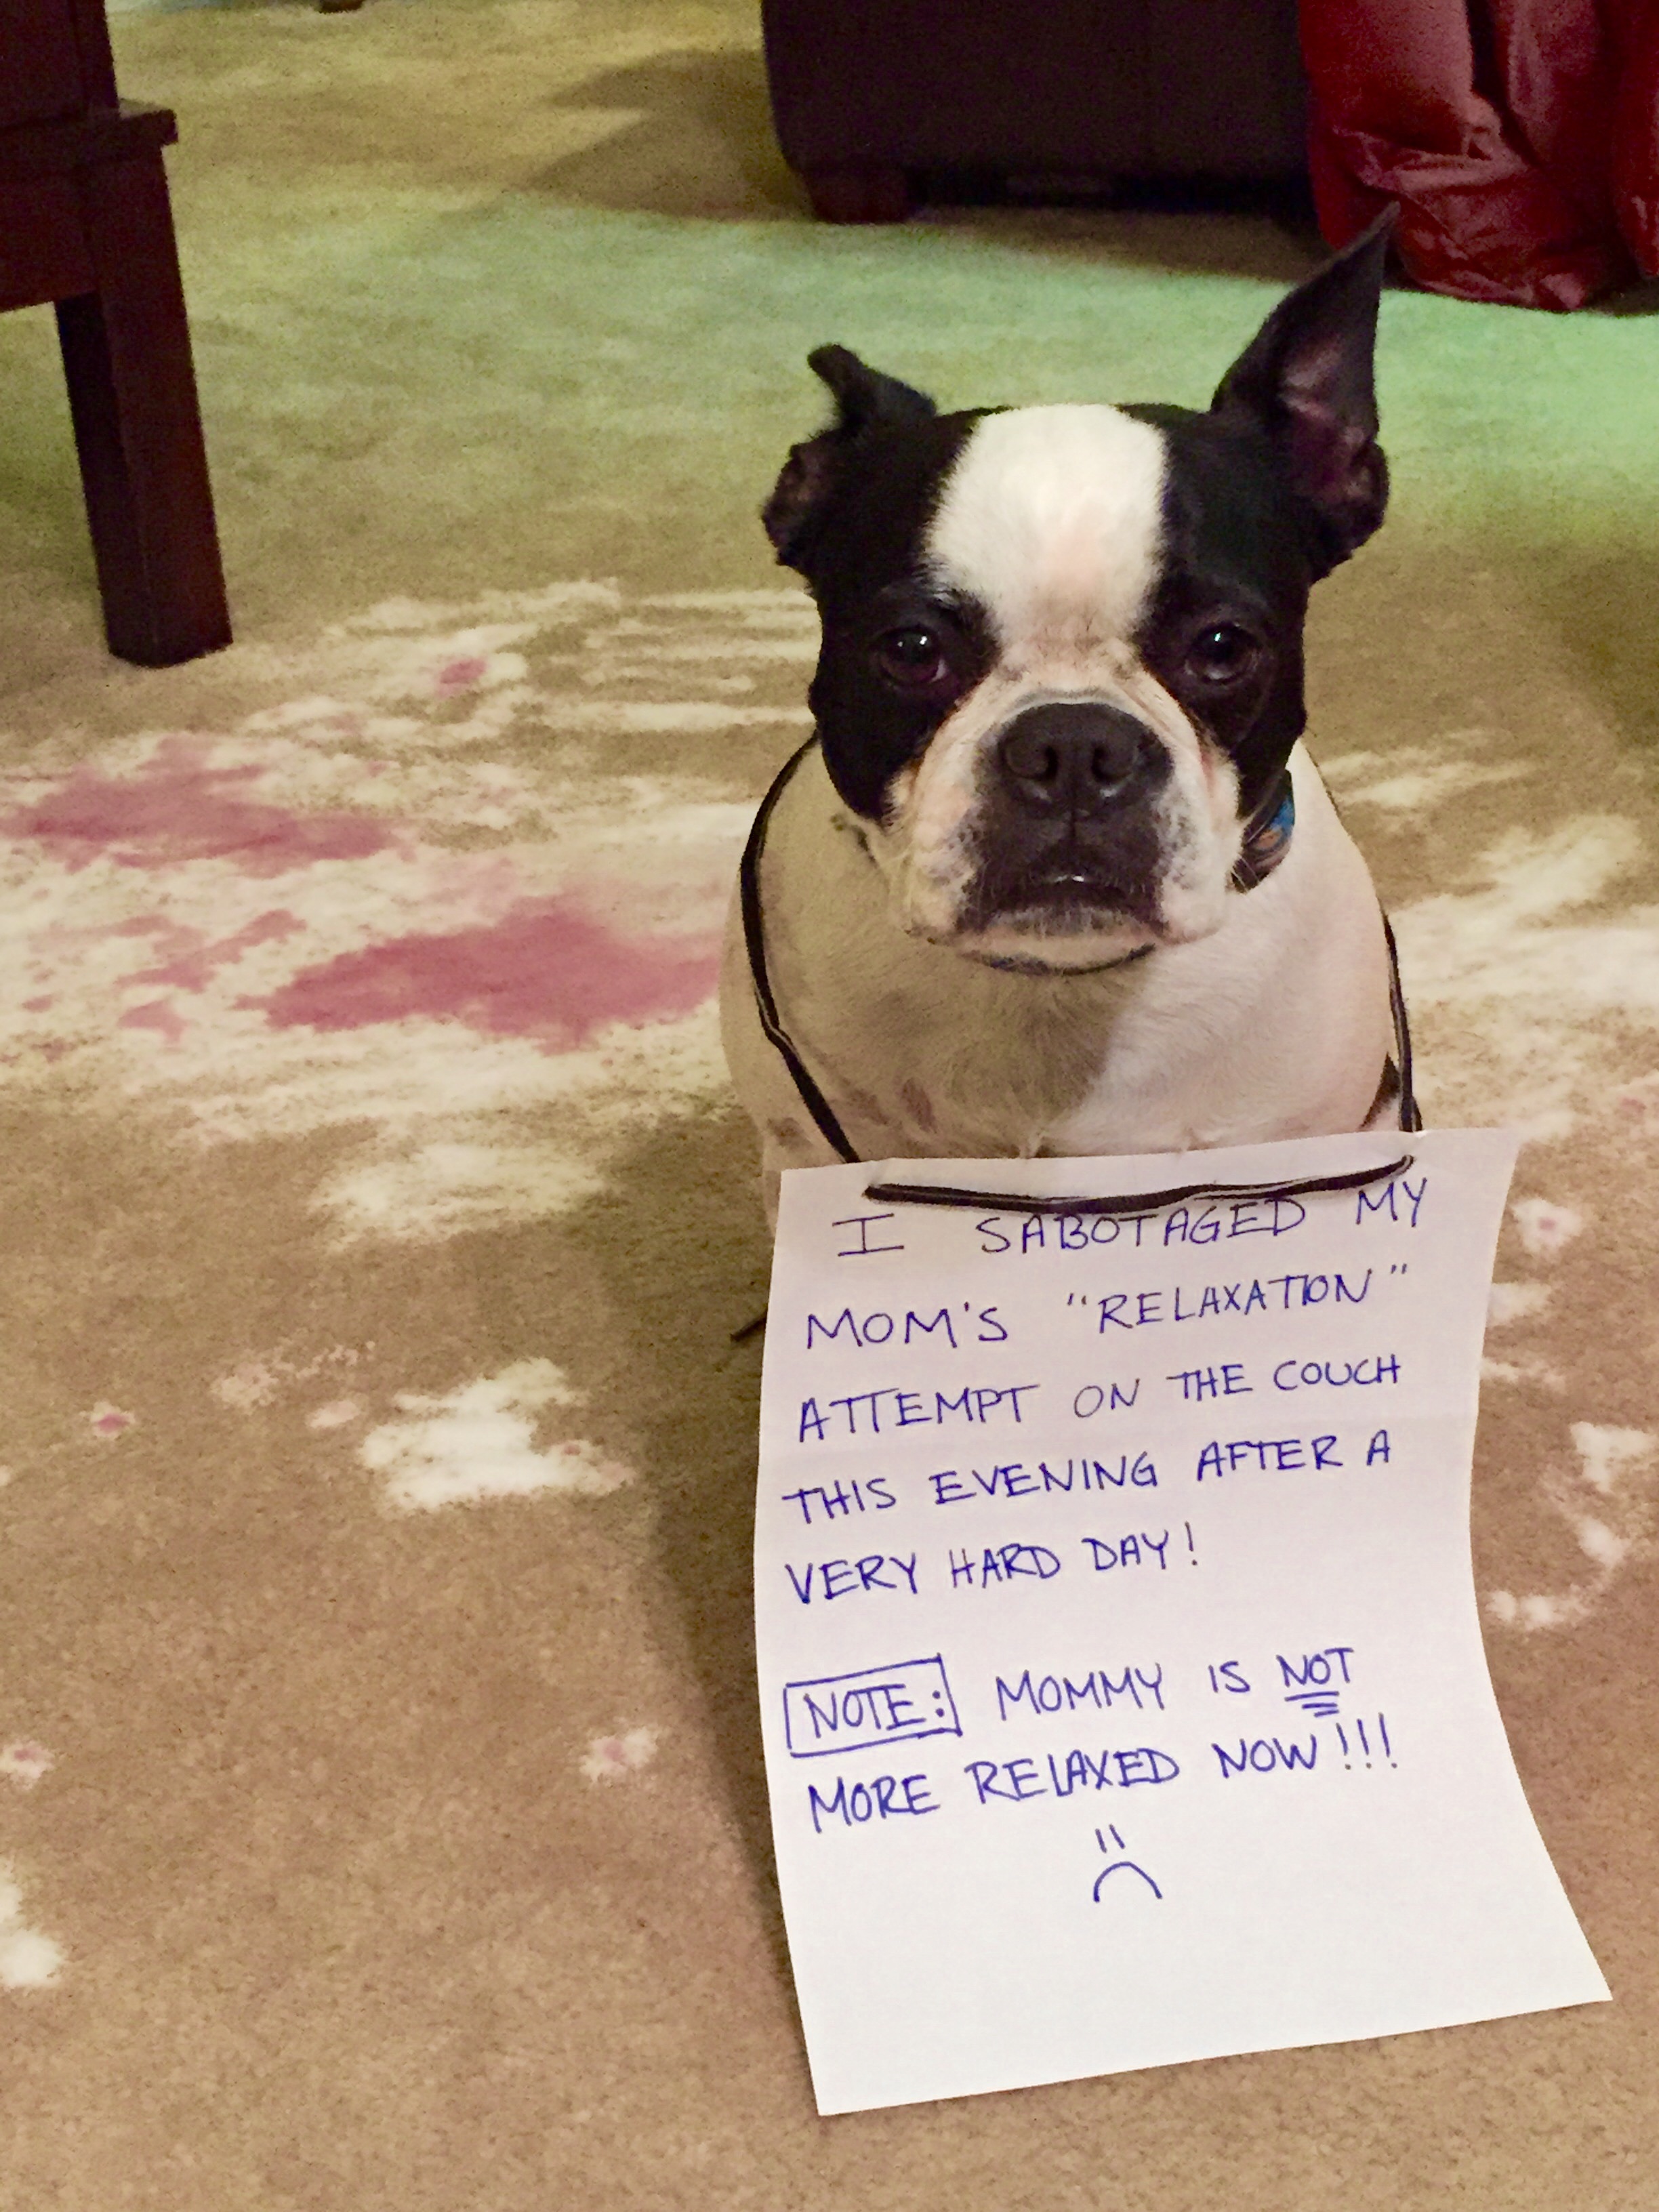 I SABOTAGED MY
MOM'S "RELAXATION"
ATTEMPT ON THE COUCH
THIS EVENING AFTER A
VERY HARD DAY!
NOTE: MOMMY IS NOT
MORE RELAXED NOW!!!